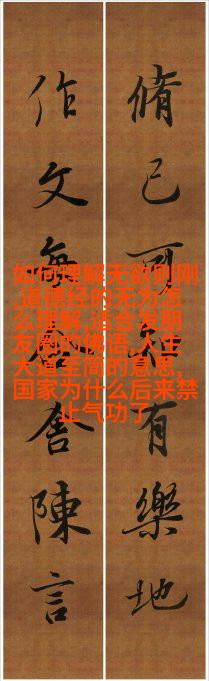 脩己可有樂地
作文每舍陳言
如何理解无欲则刚
,道德经的无为怎
么理解,适合发朋
友圈的佛语,人生
大道至简的意思,
国家为什么后来禁
止气功了